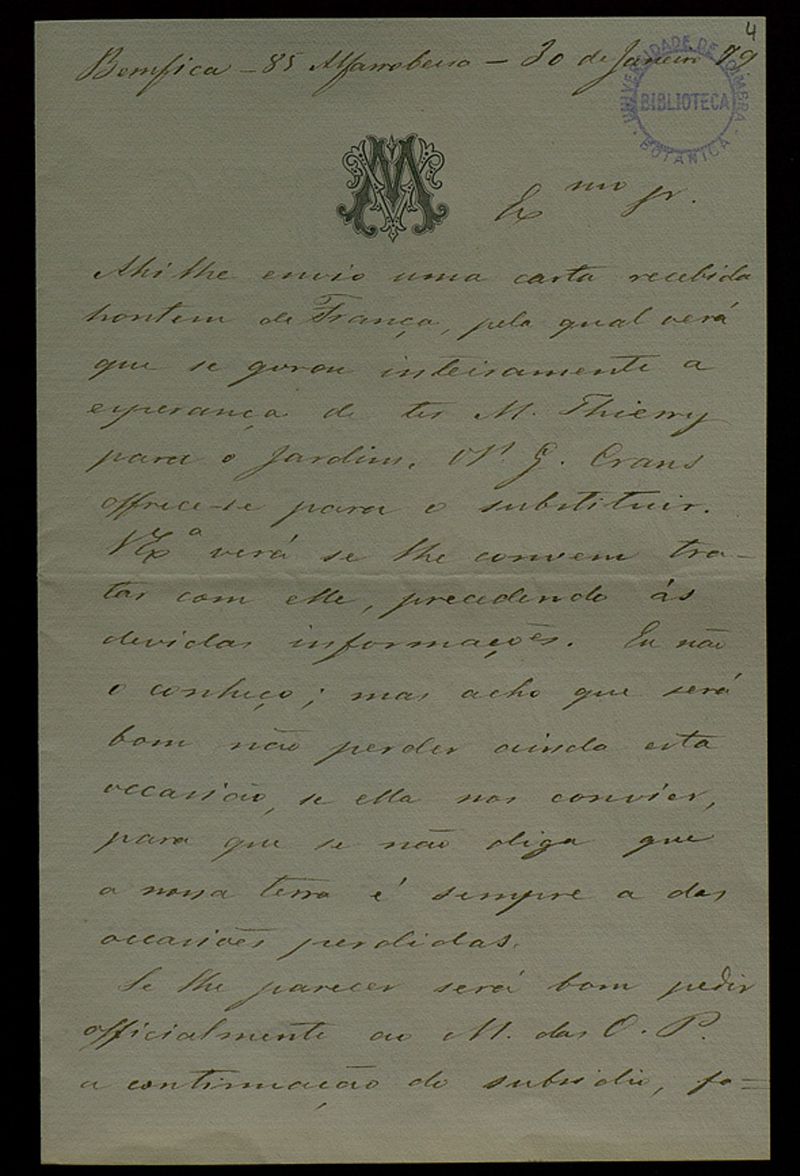 4
Bemfica - 85 Alfarrobeira - 30 de Janeiro 79
UNIVERSIDADE DE COIMBRA
BIBLIOTECA
BOTANICA
Exmo Sr.
Ahi lhe envio uma carta recebida
hontem de França, pela qual verá
que se gorou inteiramente a
esperança de ter M. Thierry
para o Jardim. Mr G. Crans
offrece-se para o substituir.
VExa verá se lhe convem tra-
tar com elle, precedendo ás
devidas informações. Eu não
o conheço; mas acho que será
bom não perder ainda esta
occasião, se ella nos convier,
para que se não diga que
a nossa terra é sempre a das
occasiões perdidas.
Se lhe parecer será bom pedir
officialmente ao M. das O. P.
a continuação do subsidio, fa=